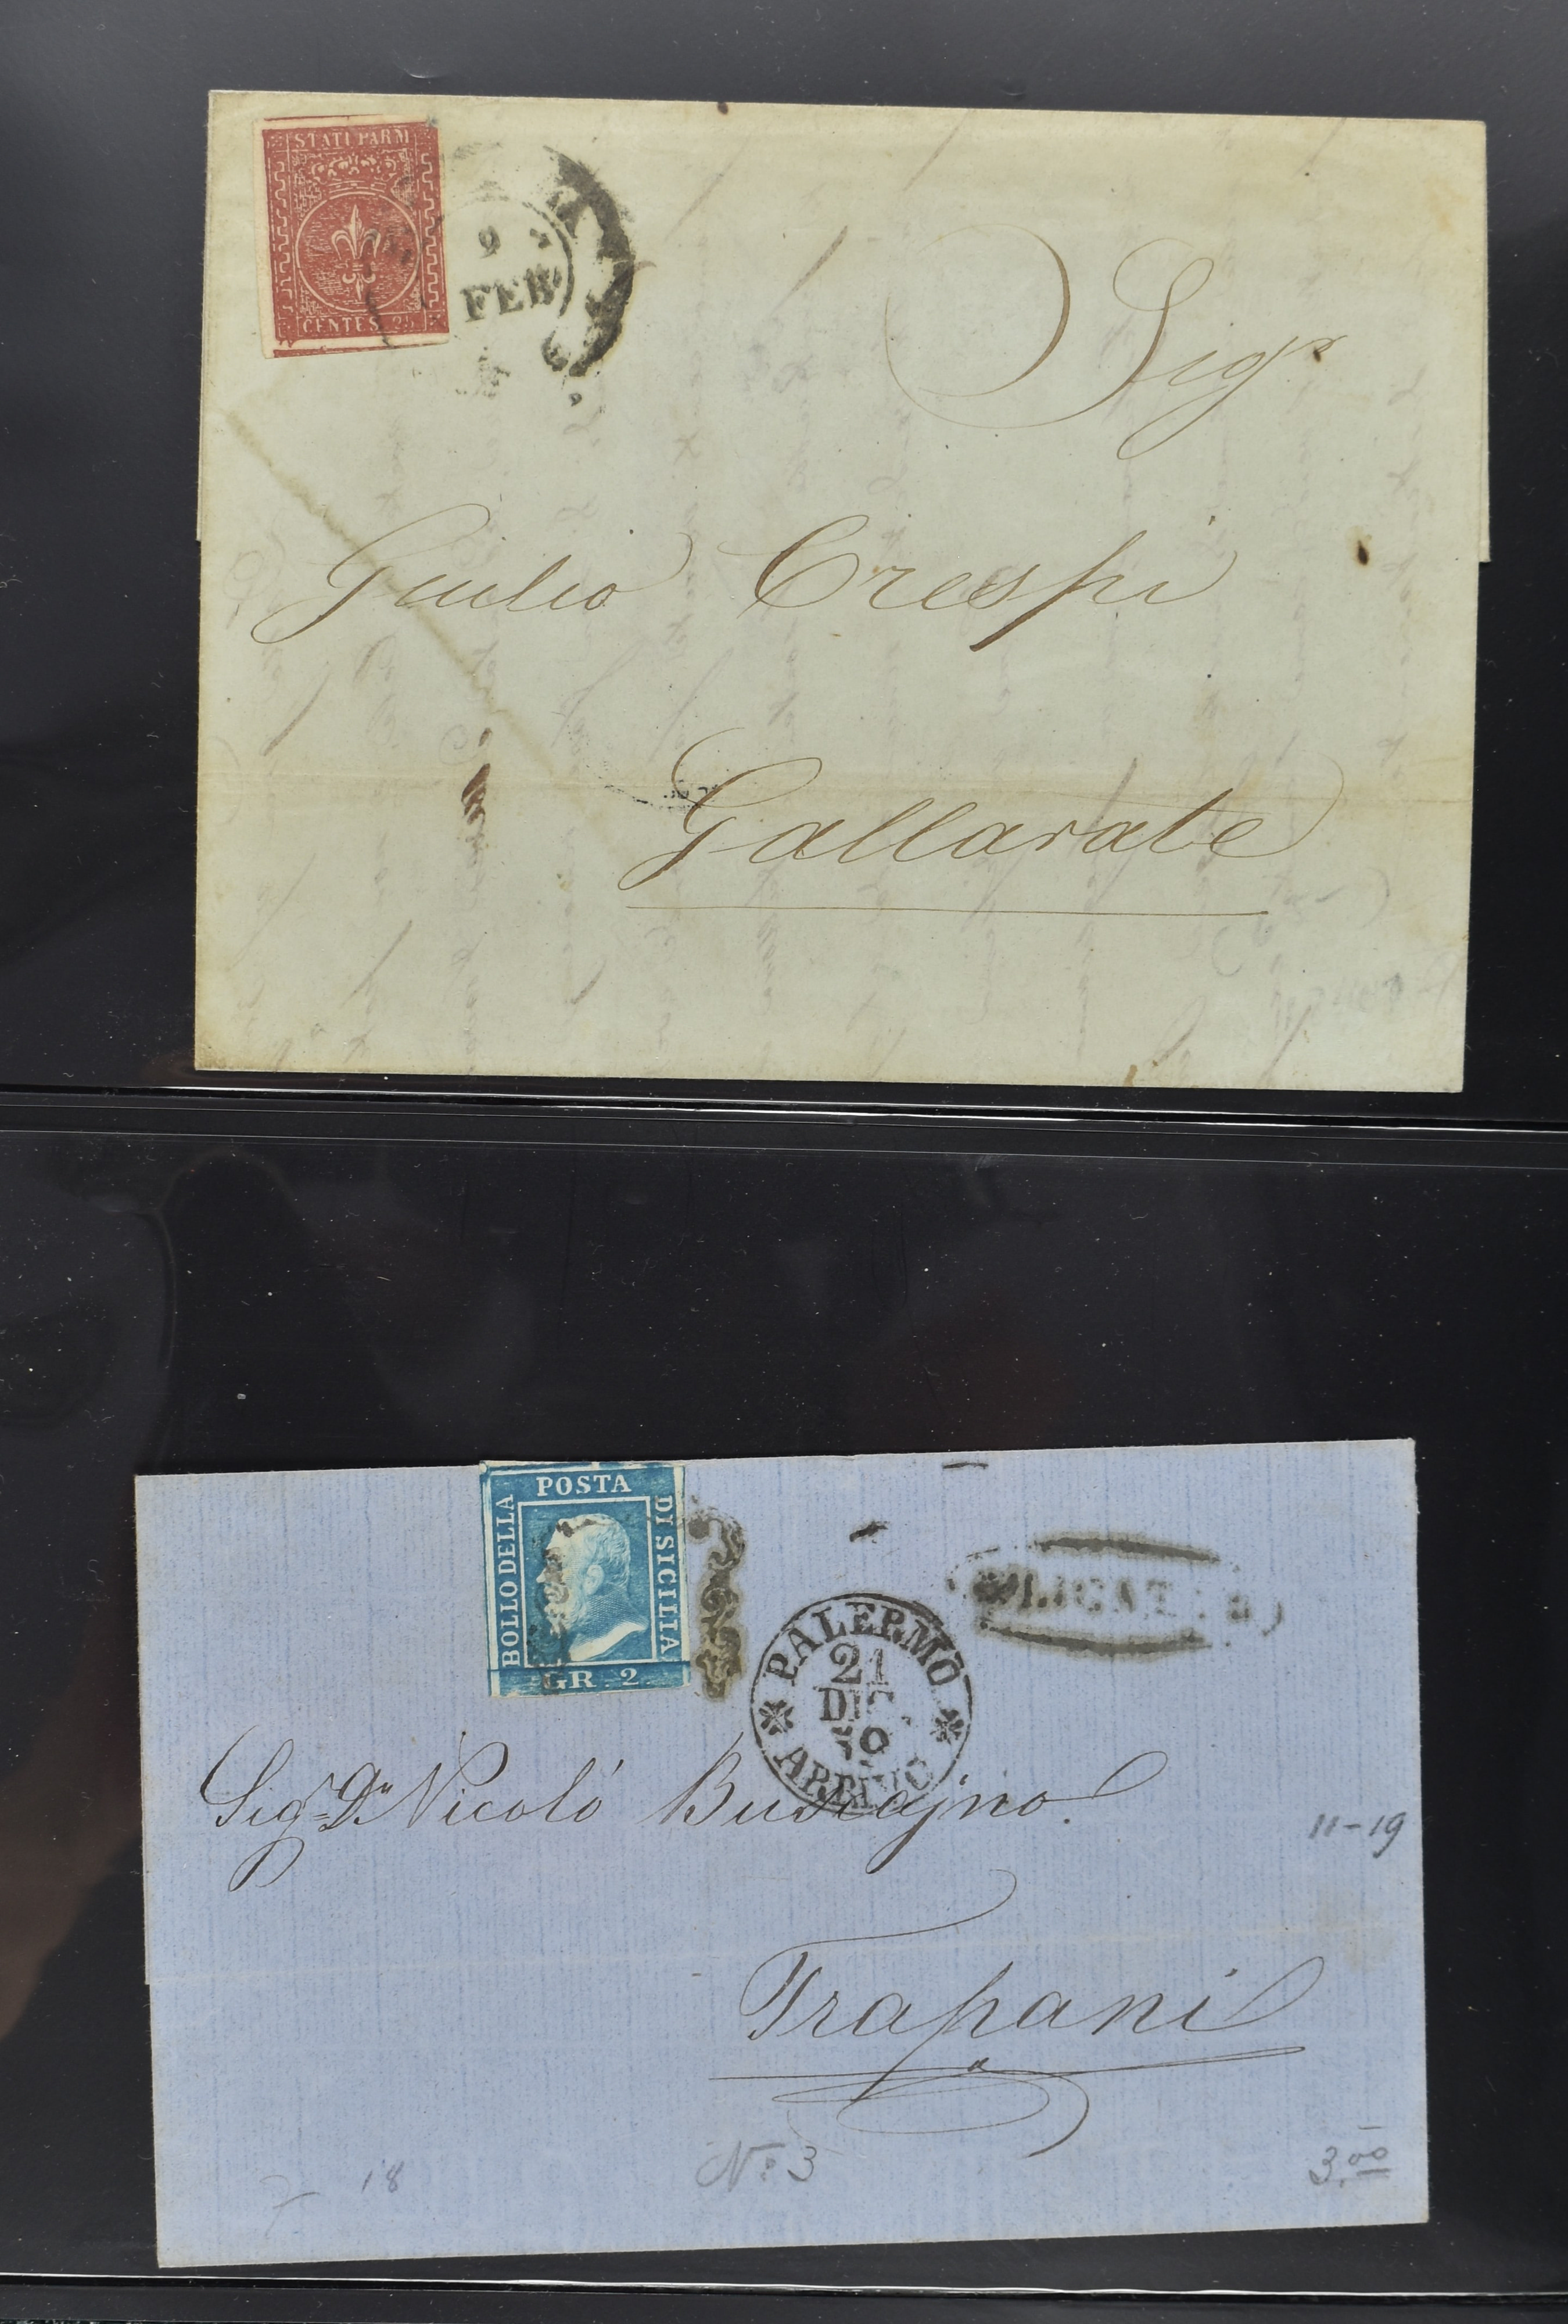 STATI PARM
CENTES. 25
9
FEB
Sigr
Giulio Crespi
Gallarate
POSTA
BOLLO DELLA
DI SICILIA
GR. 2
PALERMO
21
DIC
59
ARRIVO
LICATA
Sigr Dn Nicolò Buscajno
11-19
Trapani
18
No 3
3.00